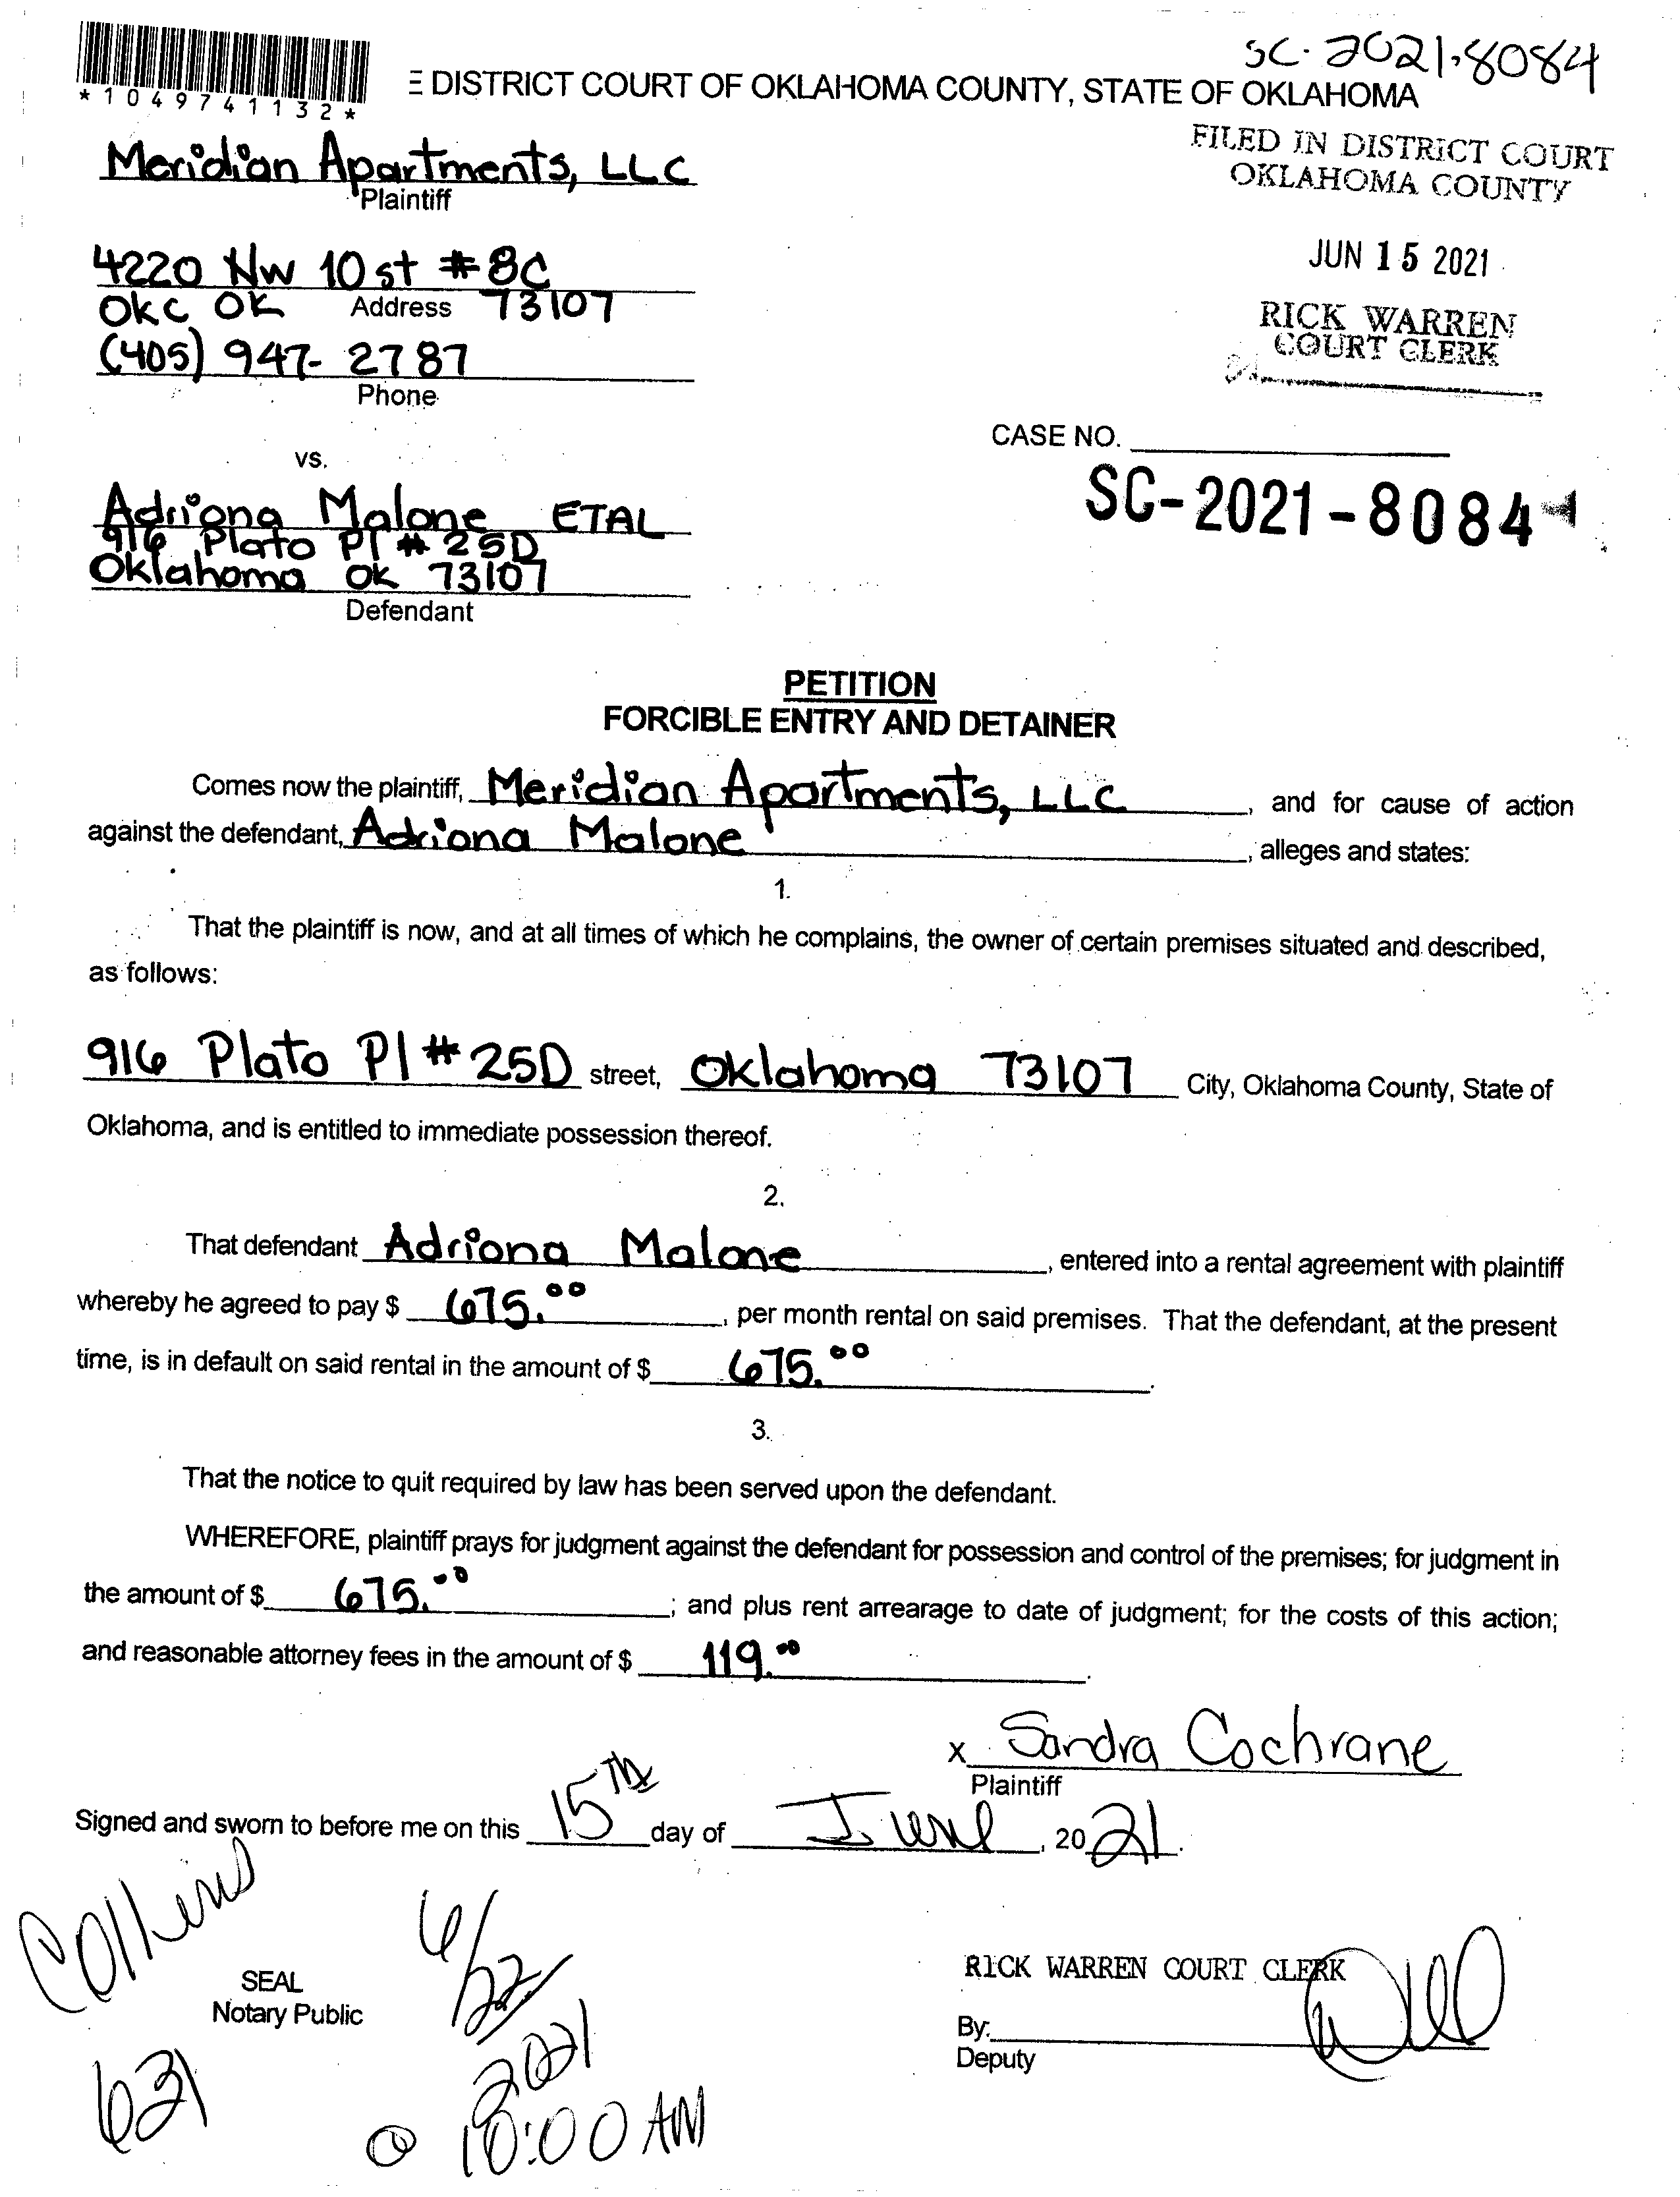 SC-2021-8084
*1049741132*
E DISTRICT COURT OF OKLAHOMA COUNTY, STATE OF OKLAHOMA
FILED IN DISTRICT COURT
OKLAHOMA COUNTY
Meridian Apartments, LLC
Plaintiff
JUN 15 2021
4220 NW 10 st #8C
OKC OK Address 73107
RICK WARREN
COURT CLERK
(405) 947-2787
Phone
CASE NO.
vs.
SC-2021-8084
Adriana Malone ETAL
916 Plato Pl # 25D
Oklahoma OK 73107
Defendant
PETITION
FORCIBLE ENTRY AND DETAINER
Comes now the plaintiff, Meridian Apartments, LLC, and for cause of action
against the defendant, Adriana Malone, alleges and states:
1.
That the plaintiff is now, and at all times of which he complains, the owner of certain premises situated and described,
as follows:
916 Plato Pl # 25D street, Oklahoma 73107 City, Oklahoma County, State of
Oklahoma, and is entitled to immediate possession thereof.
2.
That defendant Adriana Malone, entered into a rental agreement with plaintiff
whereby he agreed to pay $ 675.00, per month rental on said premises. That the defendant, at the present
time, is in default on said rental in the amount of $ 675.00.
3.
That the notice to quit required by law has been served upon the defendant.
WHEREFORE, plaintiff prays for judgment against the defendant for possession and control of the premises; for judgment in
the amount of $ 675.00; and plus rent arrearage to date of judgment; for the costs of this action;
and reasonable attorney fees in the amount of $ 119.00.
x Sandra Cochrane
Plaintiff
Signed and sworn to before me on this 15TH day of June, 2021.
Collins
6/22/
2021
@ 10:00 AM
SEAL
Notary Public
631
RICK WARREN COURT CLERK
By:
Deputy